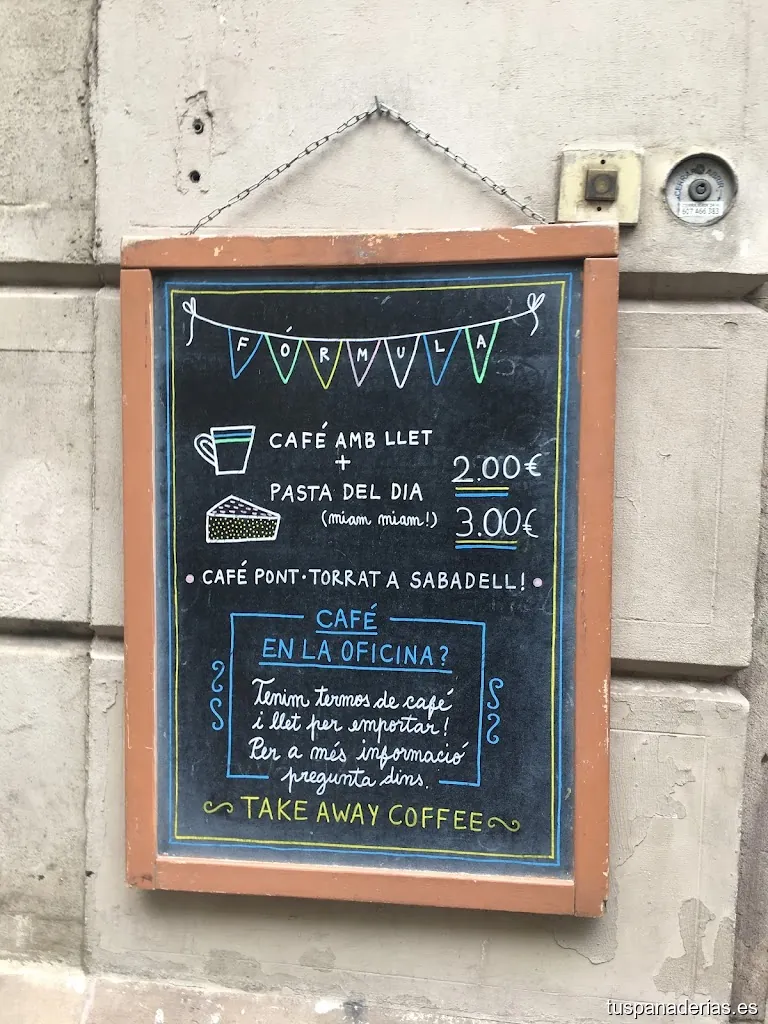 FÓRMULA
CAFÉ AMB LLET
+
2.00€
PASTA DEL DIA
(miam miam!)
3.00€
• CAFÉ PONT·TORRAT A SABADELL! •
CAFÉ
EN LA OFICINA?
Tenim termos de café
i llet per emportar!
Per a més informació
pregunta dins.
TAKE AWAY COFFEE
607 466 383
tuspanaderias.es